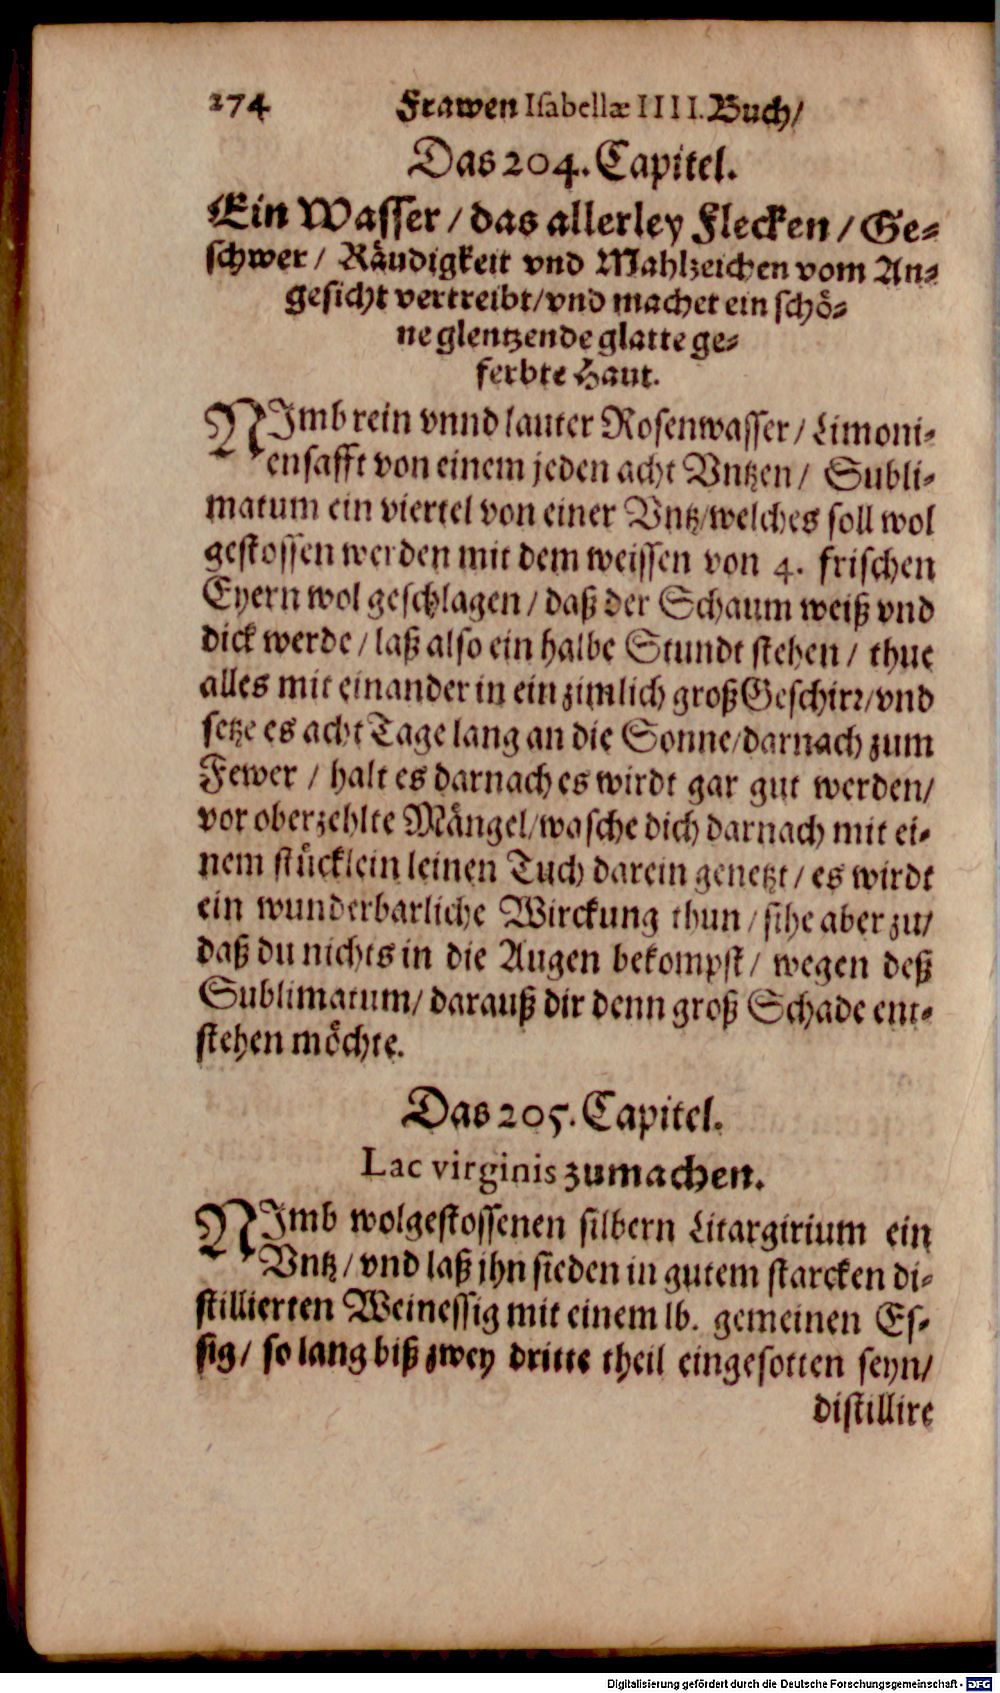 274 Frawen Isabellæ IIII. Buch/
Das 204. Capitel.
Ein Wasser / das allerley Flecken / Ge-
schwer / Räudigkeit vnd Mahlzeichen vom An-
gesicht vertreibt/vnd machet ein schö-
ne glentzende glatte ge-
ferbte Haut.
NImb rein vnnd lauter Rosenwasser / Limoni-
ensafft von einem jeden acht Vntzen / Subli-
matum ein viertel von einer Vntz/welches soll wol
gestossen werden mit dem weissen von 4. frischen
Eyern wol geschlagen / daß der Schaum weiß vnd
dick werde / laß also ein halbe Stundt stehen / thue
alles mit einander in ein zimlich groß Geschirr/vnd
setze es acht Tage lang an die Sonne/darnach zum
Fewer / halt es darnach es wirdt gar gut werden/
vor oberzehlte Mängel/wasche dich darnach mit ei-
nem stücklein leinen Tuch darein genetzt / es wirdt
ein wunderbarliche Wirckung thun / sihe aber zu/
daß du nichts in die Augen bekompst / wegen deß
Sublimatum/ darauß dir denn groß Schade ent-
stehen möchte.
Das 205. Capitel.
Lac virginis zumachen.
NImb wolgestossenen silbern Litargirium ein
Vntz / vnd laß jhn sieden in gutem starcken di-
stillierten Weinessig mit einem lb. gemeinen Es-
sig/ so lang biß zwey dritte theil eingesotten seyn/
distillire
Digitalisierung gefördert durch die Deutsche Forschungsgemeinschaft - DFG